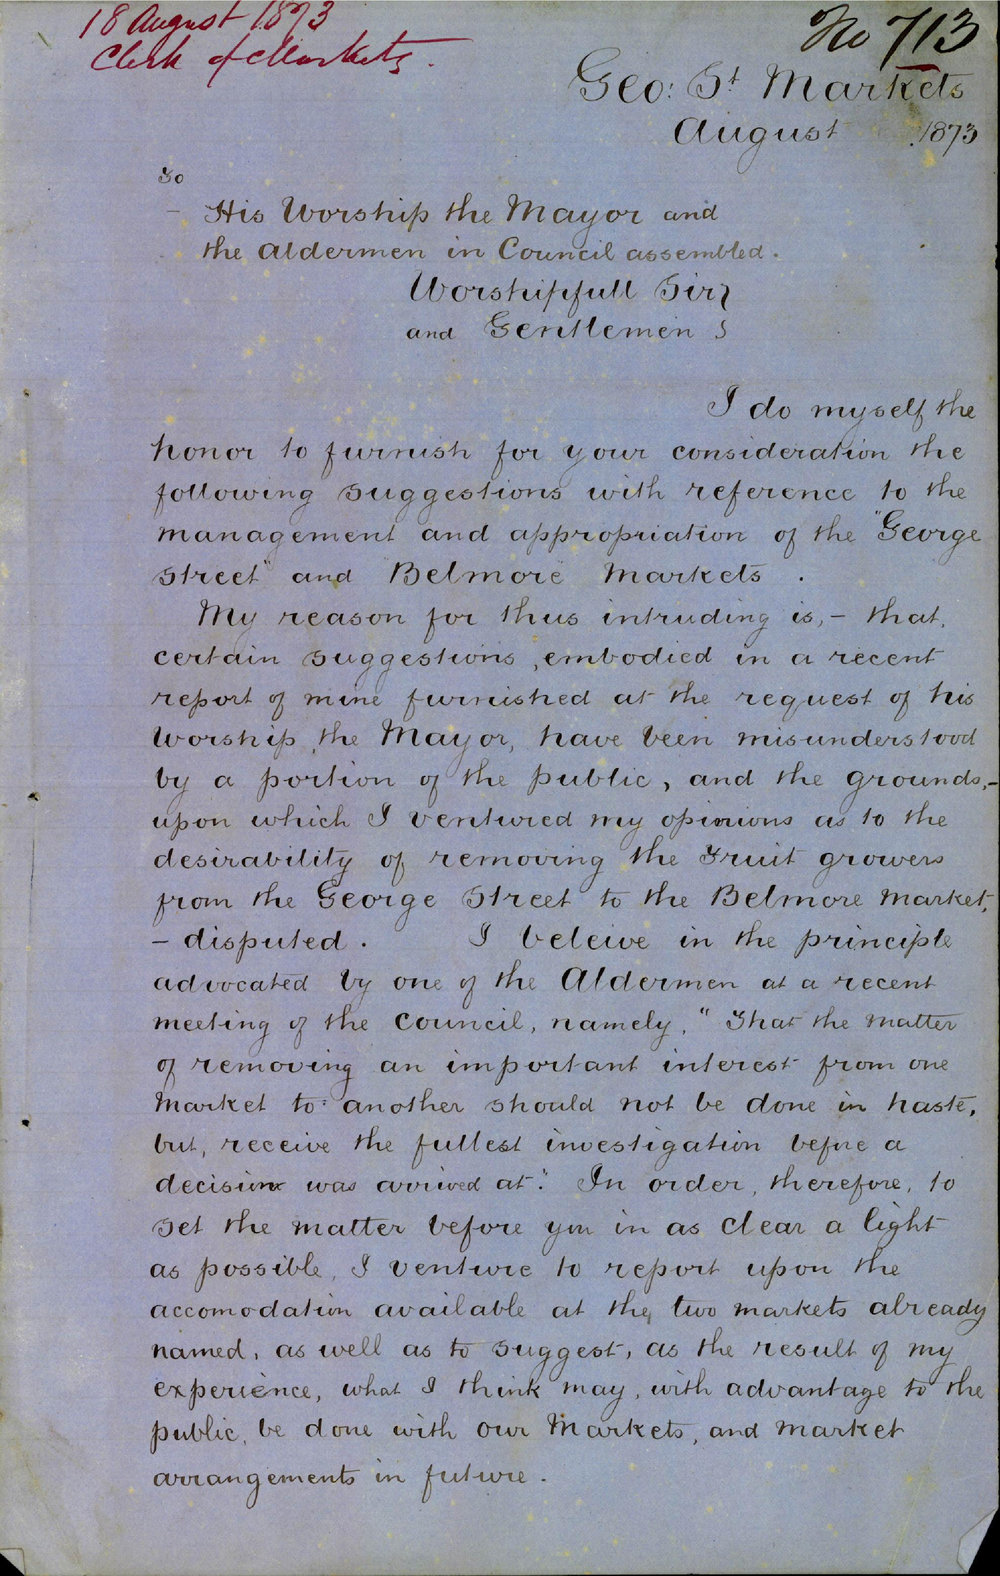 18 August 1873
Clerk of Markets.
No 713
Geo: St Markets
August 1873
To
His Worship the Mayor and
the Aldermen in Council assembled.
Worshipfull Sir
and Gentlemen
I do myself the
honor to furnish for your consideration the
following suggestions with reference to the
management and appropriation of the "George
Street" and "Belmore" Markets.
My reason for thus intruding is, - that,
certain suggestions, embodied in a recent
report of mine furnished at the request of his
Worship, the Mayor, have been misunderstood
by a portion of the public, and the grounds, -
upon which I ventured my opinions as to the
desirability of removing the Fruit growers
from the George Street to the Belmore Market,
- disputed. I beleive in the principle
advocated by one of the Aldermen at a recent
meeting of the Council, namely, "That the matter
of removing an important interest from one
Market to another should not be done in haste,
but, receive the fullest investigation before a
decision was arrived at." In order, therefore, to
set the matter before you in as clear a light
as possible, I venture to report upon the
accomodation available at the two markets already
named, as well as to suggest, as the result of my
experience, what I think may, with advantage to the
public, be done with our Markets, and market
arrangements in future.